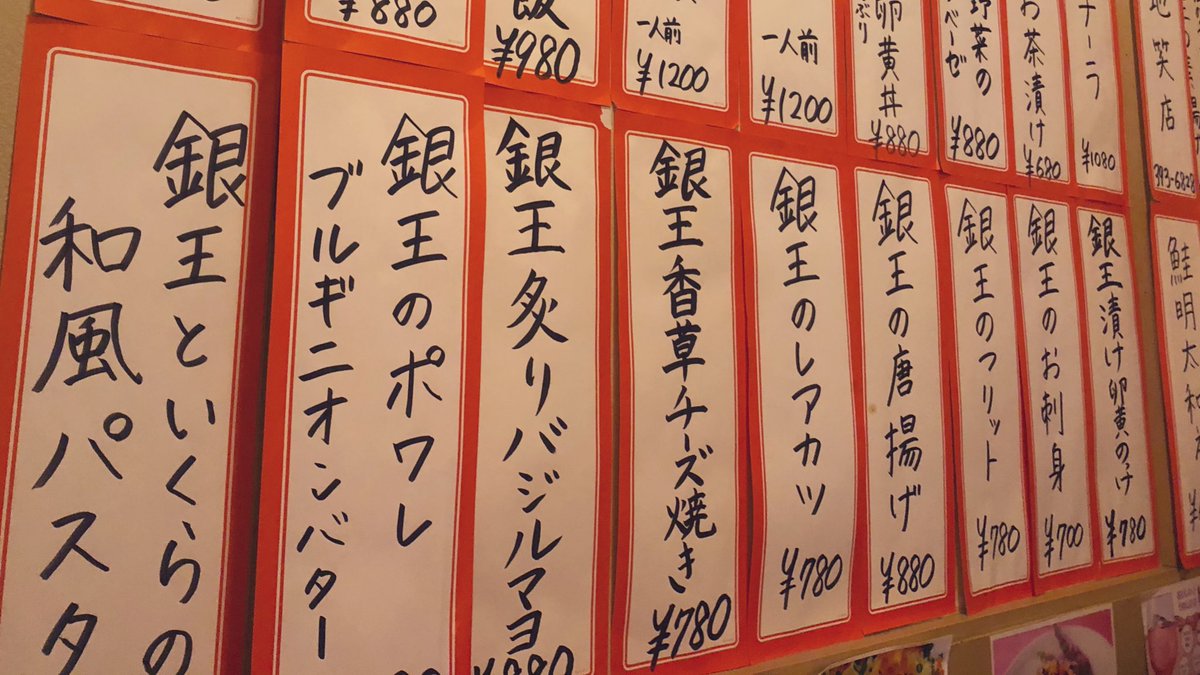 ¥880
飯
¥980
一人前
¥1200
一人前
¥1200
ぶり
卵黄丼
¥880
野菜の
ベーゼ
¥880
お茶漬け
¥680
チーラ
¥1080
地笑店
393-6828
銀王といくらの
和風パスタ
銀王のポワレ
ブルギニオンバター
銀王炙りバジルマヨ
¥980
銀王香草チーズ焼き
¥780
銀王のレアカツ
¥780
銀王の唐揚げ
¥880
銀王のフリット
¥780
銀王のお刺身
¥700
銀王漬け卵黄のっけ
¥780
鮭明太和